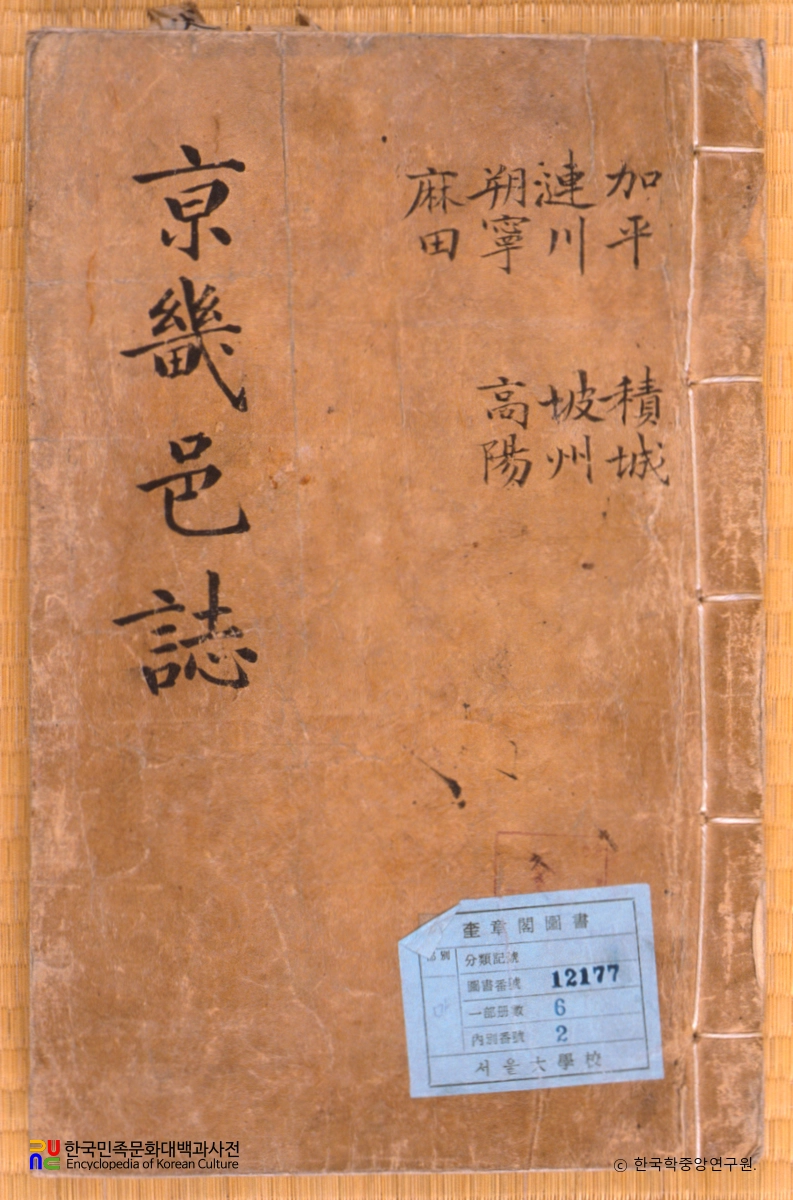 加平 積城
漣川 坡州
朔寧 高陽
麻田
亰畿邑誌
奎章閣圖書
別
分類記號
圖書番號 12177
一部册數 6
內別番號 2
서울大學校
한국민족문화대백과사전
Encyclopedia of Korean Culture
ⓒ 한국학중앙연구원.